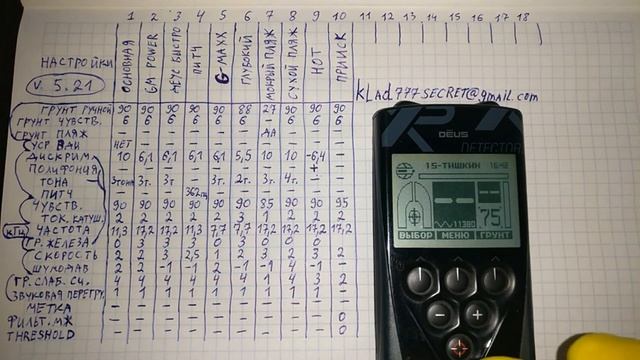 1 2 3 4 5 6 7 8 9 10 11 12 13 14 15 16 17 18
НАСТРОЙКИ ОСНОВНАЯ GM POWER ДЕУС БЫСТРО ПИТЧ G-MAXX ГЛУБОКИЙ МОКРЫЙ ПЛЯЖ СУХОЙ ПЛЯЖ HOT ПРИИСК
V. 5.21
klad777secret@gmail.com
ГРУНТ РУЧНОЙ 90 90 90 90 90 88 27 90 90 90
ГРУНТ ЧУВСТВ. 6 6 6 6 6 6 6 6 6 6
ГРУНТ ПЛЯЖ — — — — — — ДА — — —
НЕТ — — — — — — — — —
ДИСКРИМ 10 6,1 6,1 6,1 6,1 5,5 10 10 -6,4 —
ПОЛИФОНИЯ — — — — — — — — + —
ТОНА 3т. 3т. 3т. 2т. 3т. 4т. — —
ПИТЧ — — — — — — — — —
ЧУВСТВ. 90 90 90 90 90 90 85 90 90 95
ТОК. КАТУШ. 2 2 2 2 2 3 1 2 2 2
кГц ЧАСТОТА 11,3 17,2 17,2 11,3 7,7 7,7 17,2 17,2 17,2 17,2
ГР. ЖЕЛЕЗА 0 3 3 3 3 0 3 0 0 0
СКОРОСТЬ 2 2 3 2,5 1 2 3 2 3 2
ШУМОДАВ 2 2 -1 -1 2 -1 -1 4 -1 —
ГР. СЛАБ. СИ. 4 4 4 4 4 4 1 4 3 2
ЗВУКОВАЯ ПЕРЕГРУ. 1 1 1 1 1 1 1 1 1 1
МЕТКА — — — — — — — — — —
ФИЛЬТ. МЖ — — — — — — — — — 0
THRESHOLD — — — — — — — — — 0
DĒUS
DETECTOR
15-ТИШКИН
11380
75
ВЫБОР МЕНЮ ГРУНТ
− +